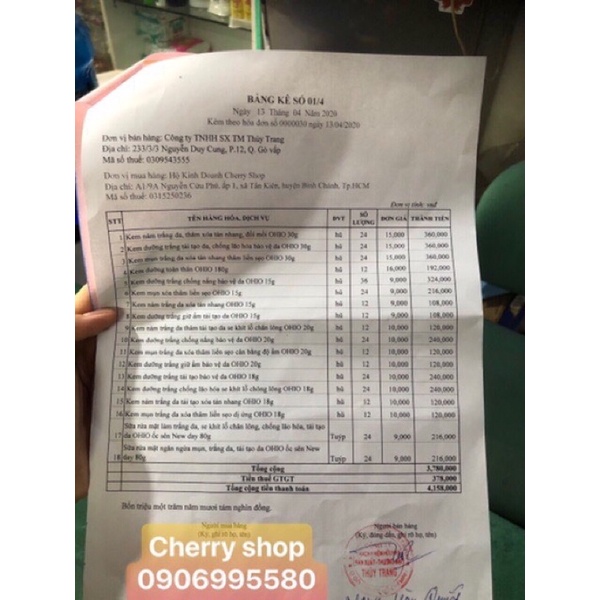 BẢNG KÊ SỐ 01/4
Ngày 15 Tháng 04 Năm 2020
Kèm theo hóa đơn số 0000030 ngày 13/04/2020
Đơn vị bán hàng: Công ty TNHH SX TM Thùy Trang
Địa chỉ: 233/3/3 Nguyễn Duy Cung, P.12, Q. Gò vấp
Mã số thuế: 0309543555
Đơn vị mua hàng: Hộ Kinh Doanh Cherry Shop
Địa chỉ: A1/9A Nguyễn Cửu Phú, ấp 1, xã Tân Kiên, huyện Bình Chánh, Tp.HCM
Mã số thuế: 0315250236
Đơn vị tính: vnđ
STT TÊN HÀNG HÓA, DỊCH VỤ ĐVT SỐ LƯỢNG ĐƠN GIÁ THÀNH TIỀN
1 Kem nám trắng da, thâm xóa tàn nhang, đồi mồi OHIO 30g hũ 24 15,000 360,000
2 Kem dưỡng trắng tái tạo da, chống lão hóa bảo vệ da OHIO 30g hũ 24 15,000 360,000
3 Kem mụn trắng da xóa tàn nhang thâm liền sẹo OHIO 30g hũ 24 15,000 360,000
4 Kem dưỡng toàn thân OHIO 180g hũ 12 16,000 192,000
5 Kem dưỡng trắng chống nắng bảo vệ da OHIO 15g hũ 36 9,000 324,000
6 Kem mụn xóa thâm liền sẹo OHIO 15g hũ 24 9,000 216,000
7 Kem nám trắng da xóa tàn nhang OHIO 15g hũ 12 9,000 108,000
8 Kem dưỡng trắng giữ ẩm tái tạo da OHIO 15g hũ 12 9,000 108,000
9 Kem nám trắng da thâm tái tạo da se khít lỗ chân lông OHIO 20g hũ 12 10,000 120,000
10 Kem dưỡng trắng chống nắng bảo vệ da OHIO 20g hũ 24 10,000 240,000
11 Kem mụn trắng da xóa thâm liền sẹo cân bằng độ ẩm OHIO 20g hũ 12 10,000 120,000
12 Kem dưỡng trắng giữ ẩm bảo vệ da OHIO 20g hũ 12 10,000 120,000
13 Kem dưỡng trắng tái tạo bảo vệ da OHIO 18g hũ 24 10,000 240,000
14 Kem dưỡng trắng chống lão hóa se khít lỗ chông lông OHIO 18g hũ 24 10,000 240,000
15 Kem nám trắng da tái tạo xóa tàn nhang OHIO 18g hũ 12 10,000 120,000
16 Kem mụn trắng da xóa thâm liền sẹo dị ứng OHIO 18g hũ 12 10,000 120,000
Sữa rửa mặt làm trắng da, se khít lỗ chân lông, chống lão hóa, tái tạo
17 da OHIO ốc sên New day 80g Tuýp 24 9,000 216,000
Sữa rửa mặt ngăn ngừa mụn, trắng da, tái tạo da OHIO ốc sên New
18 day 80g Tuýp 24 9,000 216,000
Tổng cộng 3,780,000
Tiền thuế GTGT 378,000
Tổng cộng tiền thanh toán 4,158,000
Bốn triệu một trăm năm mươi tám nghìn đồng.
Người mua hàng
(Ký, ghi rõ họ, tên)
Người bán hàng
(Ký, đóng dấu, ghi rõ họ, tên)
THÙY TRANG
Cherry shop
0906995580